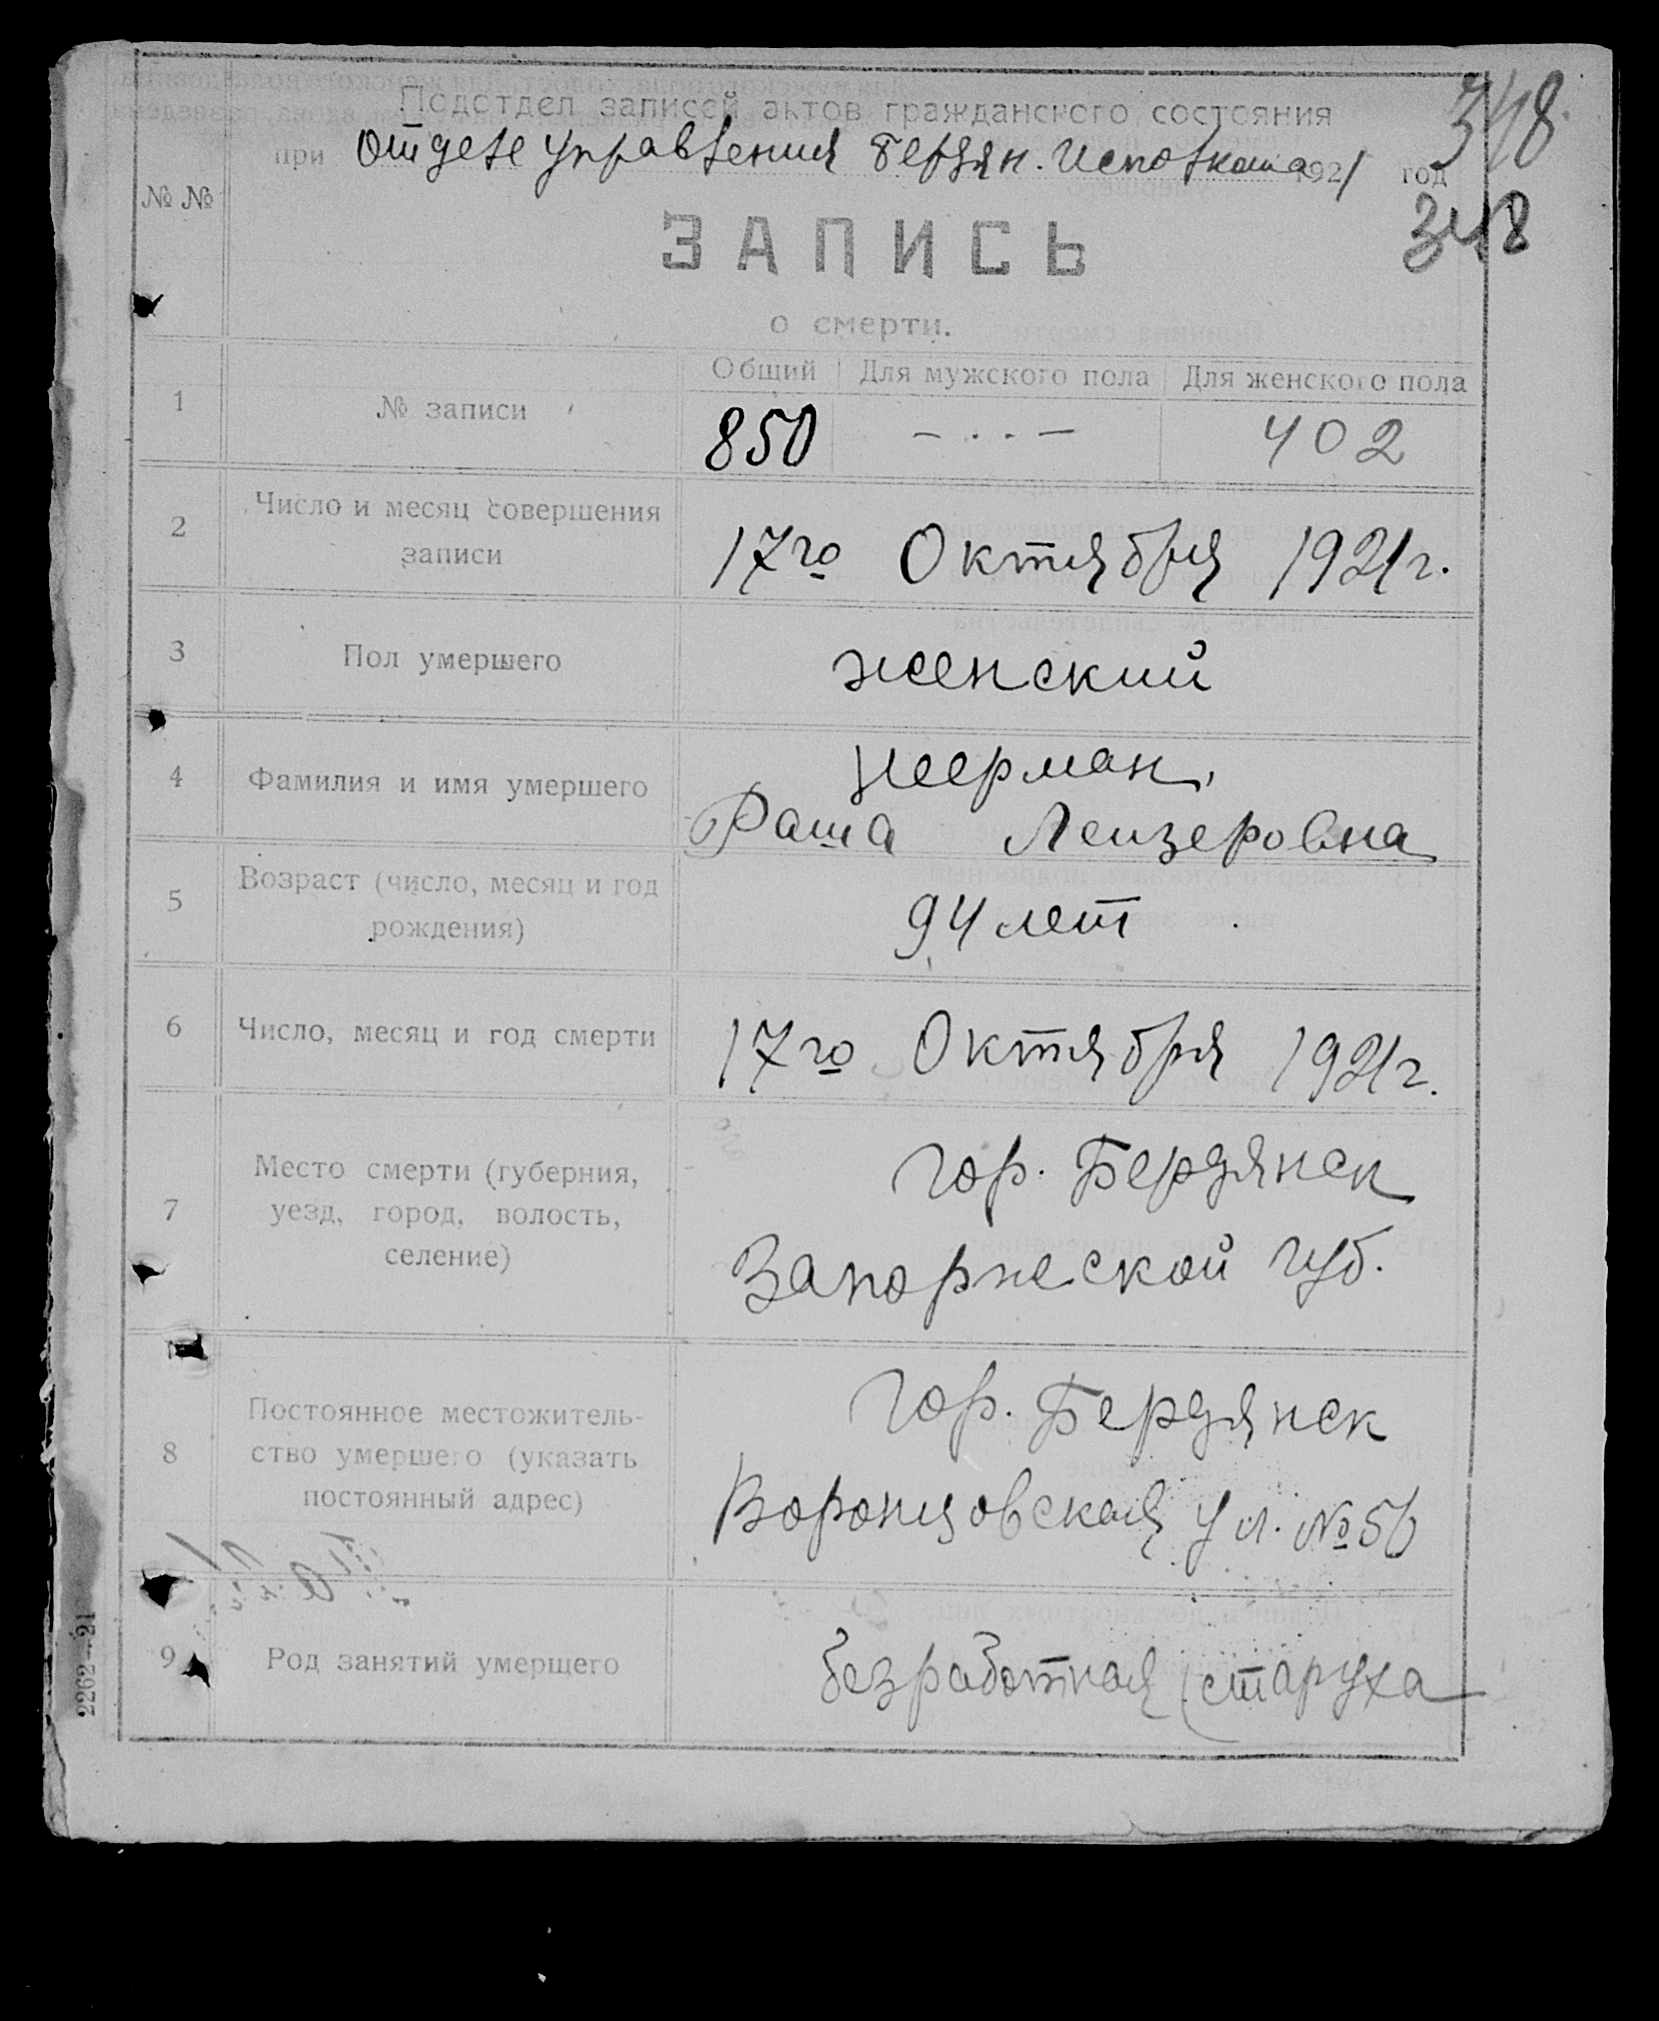 Подотдел записей актов гражданского состояния
при Отделе Управления Бердян. Исполкома 1921 год
348
348
№ №
ЗАПИСЬ
о смерти.
Общий Для мужского пола Для женского пола
1 № записи 850 — · · — 402
2 Число и месяц совершения
записи
17го Октября 1921 г.
3 Пол умершего женский
4 Фамилия и имя умершего
Раша Лейзеровна
5 Возраст (число, месяц и год
рождения)
94 лет
6 Число, месяц и год смерти 17го Октября 1921 г.
7 Место смерти (губерния,
уезд, город, волость,
селение)
гор. Бердянск
Запорожской губ.
8 Постоянное местожитель-
ство умершего (указать
постоянный адрес)
гор. Бердянск
Воронцовская ул. № 56
9 Род занятий умершего безработная (старуха
2262—21